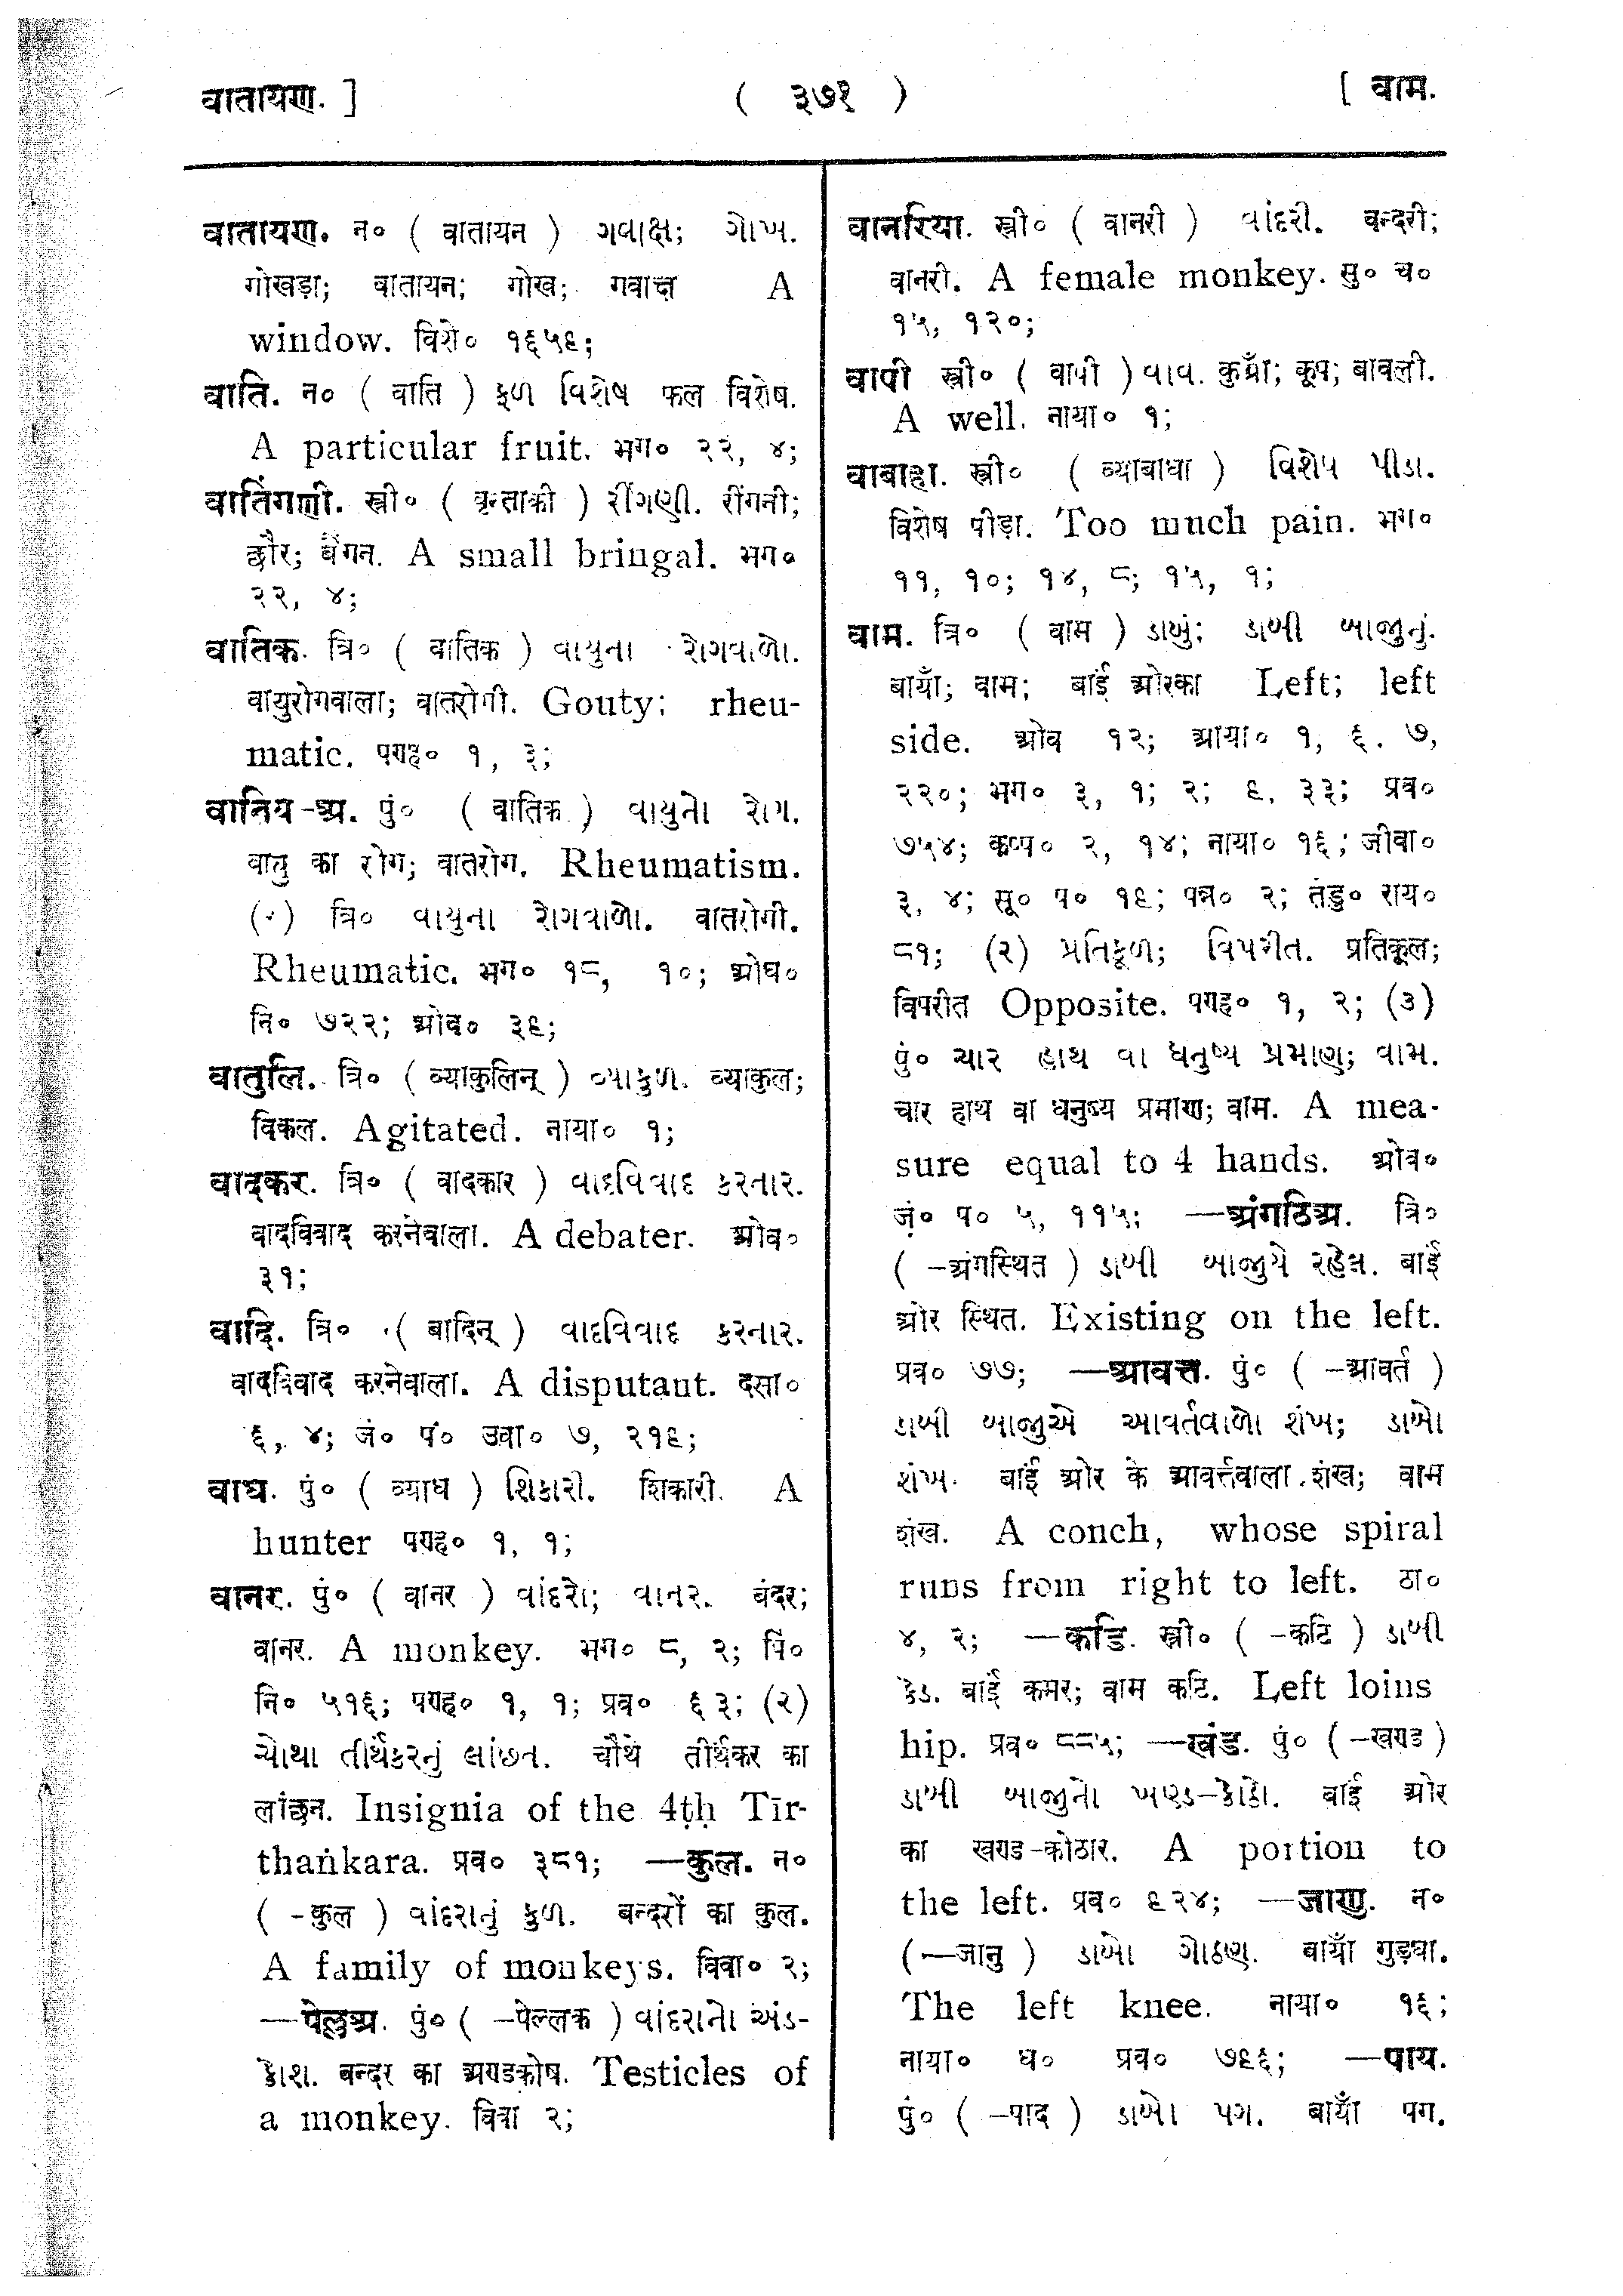 वातायण. ]
( ३७१ )
[ वाम.
वातायण. न० ( वातायन ) ગવાક્ષ; ગોખ.
गोखड़ा; वातायन; गोख; गवाक्ष A
window. विशे० १६५९;
वाति. न० ( वाति ) ફળ વિશેષ फल विशेष.
A particular fruit. भग० २२, ४;
वातिंगणी. स्त्री० ( वृन्ताकी ) રીંગણી. रींगनी;
छौर; बैंगन. A small bringal. भग०
२२, ४;
वातिक. त्रि० ( वातिक ) વાયુના રોગવાળો.
वायुरोगवाला; वातरोगी. Gouty; rheu-
matic. पण्ह० १, ३;
वातिय-अ. पुं० ( वातिक ) વાયુનો રોગ.
वायु का रोग; वातरोग. Rheumatism.
(२) त्रि० વાયુના રોગવાળો. वातरोगी.
Rheumatic. भग० १८, १०; ओघ०
नि० ७२२; ओव० ३९;
वातुलि. त्रि० ( व्याकुलिन् ) વ્યાકુળ. व्याकुल;
विकल. Agitated. नाया० १;
वादकर. त्रि० ( वादकार ) વાદવિવાદ કરનાર.
वादविवाद करनेवाला. A debater. ओव०
३१;
वादि. त्रि० ( वादिन् ) વાદવિવાદ કરનાર.
वादविवाद करनेवाला. A disputant. दसा०
६, ४; जं० पं० उवा० ७, २१९;
वाध. पुं० ( व्याध ) શિકારી. शिकारी. A
hunter पण्ह० १, १;
वानर. पुं० ( वानर ) વાંદરો; વાનર. बंदर;
वानर. A monkey. भग० ८, २; पिं०
नि० ५१६; पण्ह० १, १; प्रव० ६३; (२)
ચોથા તીર્થંકરનું લાંછન. चौथे तीर्थंकर का
लांछन. Insignia of the 4ṭḥ Tīr-
thaṅkara. प्रव० ३८१; —कुल. न०
( -कुल ) વાંદરાનું કુળ. बन्दरों का कुल.
A family of monkeys. विवा० २;
—पेल्लअ. पुं० ( -पेल्लक ) વાંદરાનો અંડ-
કોશ. बन्दर का अण्डकोष. Testicles of
a monkey. विवा २;
वानरिया. स्त्री० ( वानरी ) વાંદરી. बन्दरी;
वानरी. A female monkey. सु० च०
१५, १२०;
वापी स्त्री० ( वापी ) વાવ. कुआँ; कूप; बावली.
A well. नाया० १;
वाबाहा. स्त्री० ( व्याबाधा ) વિશેષ પીડા.
विशेष पीड़ा. Too much pain. भग०
११, १०; १४, ८; १५, १;
वाम. त्रि० ( वाम ) ડાબું; ડાબી બાજુનું.
बायाँ; वाम; बाईं ओरका Left; left
side. ओव १२; आया० १, ६. ७,
२२०; भग० ३, १; २; ९, ३३; प्रव०
७५४; कप्प० २, १४; नाया० १६; जीवा०
३, ४; सू० प० १९; पन्न० २; तंडु० राय०
८१; (२) પ્રતિકૂળ; વિપરીત. प्रतिकूल;
विपरीत Opposite. पण्ह० १, २; (३)
पुं० ચાર હાથ વા ધનુષ્ય પ્રમાણ; વામ.
चार हाथ वा धनुष्य प्रमाण; वाम. A mea-
sure equal to 4 hands. ओव०
जं० प० ५, ११५; —अंगठिअ. त्रि०
( -अंगस्थित ) ડાબી બાજુયે રહેલ. बाईं
ओर स्थित. Existing on the left.
प्रव० ७७; —आवत्त. पुं० ( -आवर्त )
ડાબી બાજુએ આવર્તવાળો શંખ; ડાબો
શંખ. बाईं ओर के आवर्त्तवाला शंख; वाम
शंख. A conch, whose spiral
runs from right to left. ठा०
४, २; —कडि. स्त्री० ( -कटि ) ડાબી
કેડ. बाईं कमर; वाम कटि. Left loins
hip. प्रव० ८८५; —खंड. पुं० ( -खण्ड )
ડાબી બાજુનો ખણ્ડ-કોઠો. बाईं ओर
का खण्ड-कोठार. A portion to
the left. प्रव० ९२४; —जाणु. न०
(—जानु ) ડાબો ગોઠણ. बायाँ गुड़घा.
The left knee. नाया० १६;
नाया० ध० प्रव० ७९६; —पाय.
पुं० ( -पाद ) ડાબો પગ. बायाँ पग.